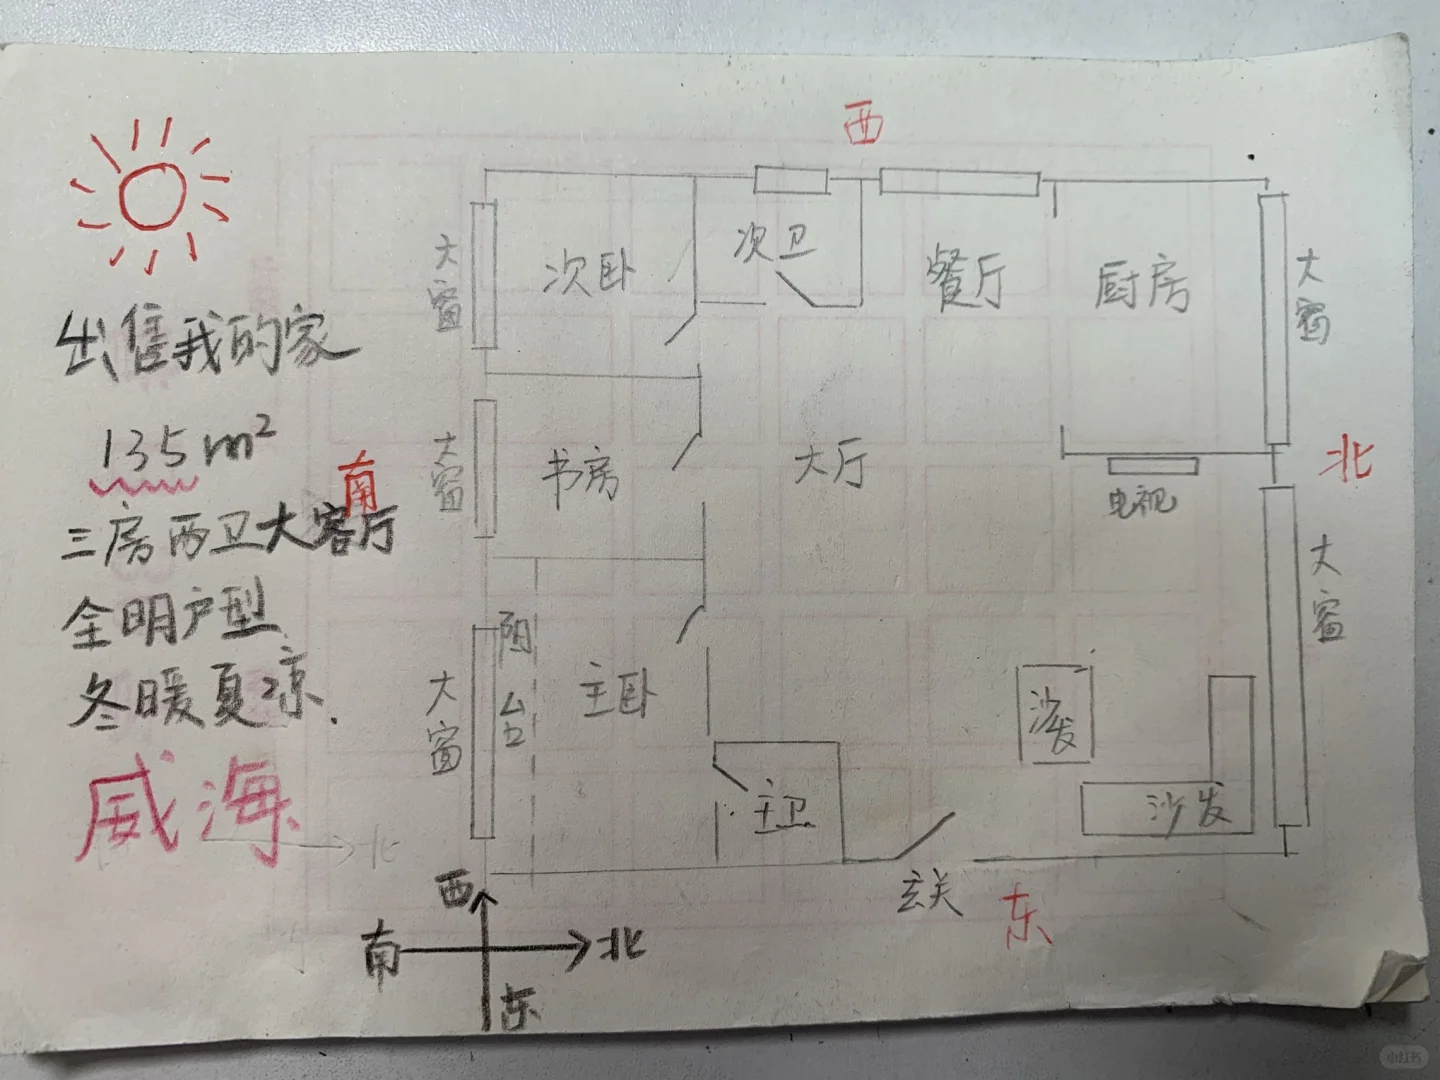 西
大窗
次卧
次卫
餐厅
厨房
大窗
出售我的家
135m²
三房两卫大客厅
全明户型
冬暖夏凉.
威海
南
大窗
书房
大厅
电视
北
大窗
阳台
主卧
大窗
沙发
沙发
主卫
玄关
东
北
西
南
北
东
小红书